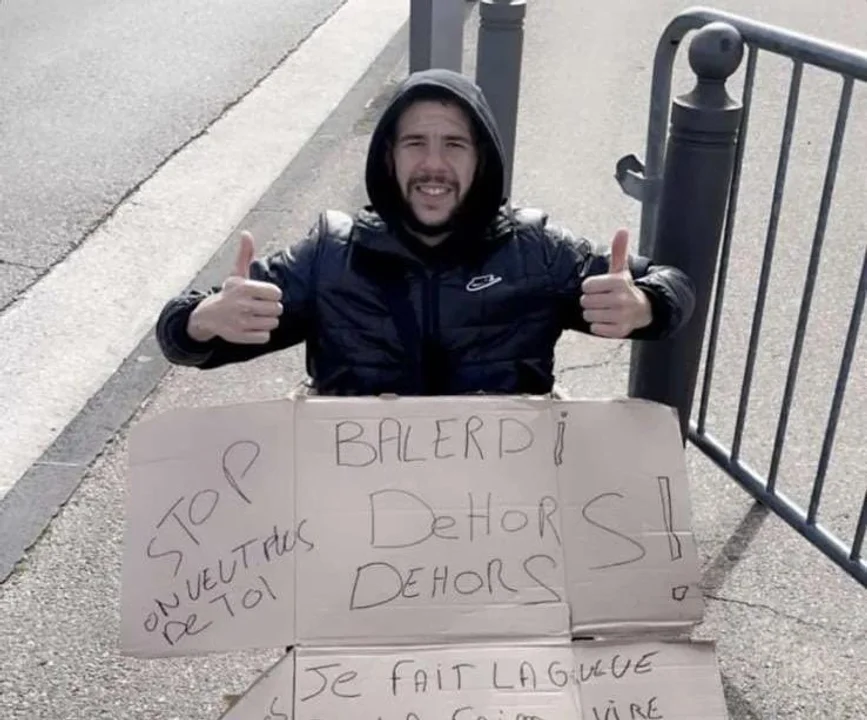 STOP
ON VEUT PLUS
DE TOI
BALERDi
DeHORS!
DEHORS
Je FAIT LA GUEUE
LA FAIM VIRE